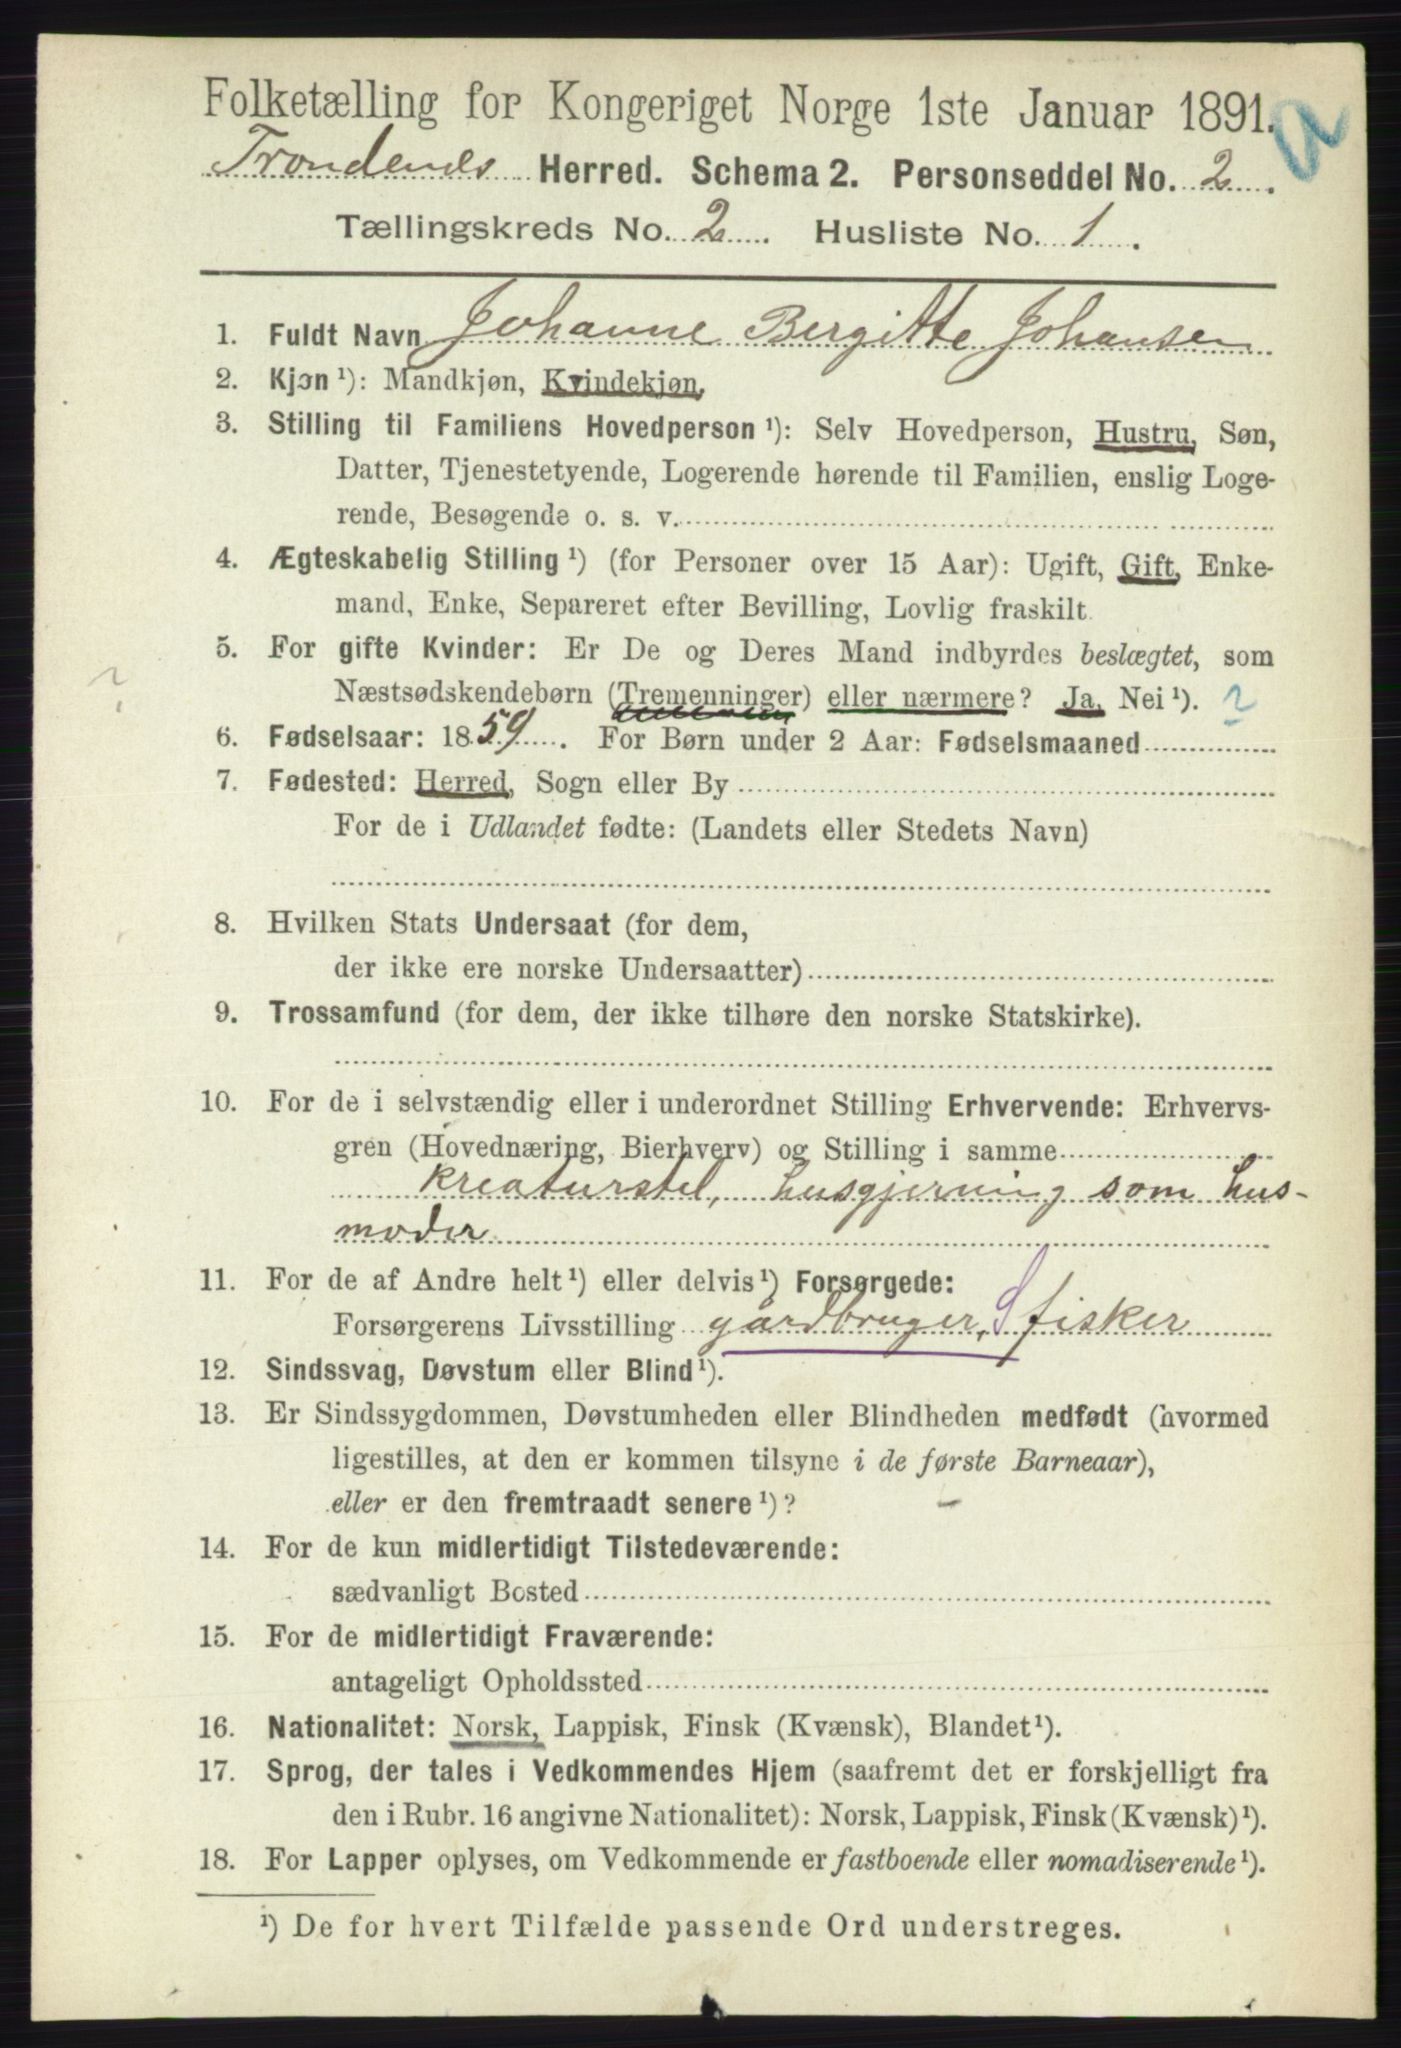 Folketælling for Kongeriget Norge 1ste Januar 1891.
Trondenes Herred. Schema 2. Personseddel No. 2.
Tællingskreds No. 2. Husliste No. 1.
1. Fuldt Navn Johanne Bergitte Johansen
2. Kjøn ¹): Mandkjøn, Kvindekjøn.
3. Stilling til Familiens Hovedperson ¹): Selv Hovedperson, Hustru, Søn,
Datter, Tjenestetyende, Logerende hørende til Familien, enslig Loge-
rende, Besøgende o. s. v.
4. Ægteskabelig Stilling ¹) (for Personer over 15 Aar): Ugift, Gift, Enke-
mand, Enke, Separeret efter Bevilling, Lovlig fraskilt.
5. For gifte Kvinder: Er De og Deres Mand indbyrdes beslægtet, som
Næstsødskendebørn (Tremenninger) eller nærmere? Ja, Nei ¹). ?
6. Fødselsaar: 1859. For Børn under 2 Aar: Fødselsmaaned
7. Fødested: Herred, Sogn eller By
For de i Udlandet fødte: (Landets eller Stedets Navn)
8. Hvilken Stats Undersaat (for dem,
der ikke ere norske Undersaatter)
9. Trossamfund (for dem, der ikke tilhøre den norske Statskirke).
10. For de i selvstændig eller i underordnet Stilling Erhvervende: Erhvervs-
gren (Hovednæring, Bierhverv) og Stilling i samme
kreaturstel, husgjerning som hus-
moder
11. For de af Andre helt ¹) eller delvis ¹) Forsørgede:
Forsørgerens Livsstilling gårdbruger, S fisker
12. Sindssvag, Døvstum eller Blind ¹).
13. Er Sindssygdommen, Døvstumheden eller Blindheden medfødt (hvormed
ligestilles, at den er kommen tilsyne i de første Barneaar),
eller er den fremtraadt senere ¹)? -
14. For de kun midlertidigt Tilstedeværende:
sædvanligt Bosted
15. For de midlertidigt Fraværende:
antageligt Opholdssted
16. Nationalitet: Norsk, Lappisk, Finsk (Kvænsk), Blandet ¹).
17. Sprog, der tales i Vedkommendes Hjem (saafremt det er forskjelligt fra
den i Rubr. 16 angivne Nationalitet): Norsk, Lappisk, Finsk (Kvænsk) ¹).
18. For Lapper oplyses, om Vedkommende er fastboende eller nomadiserende ¹).
¹) De for hvert Tilfælde passende Ord understreges.